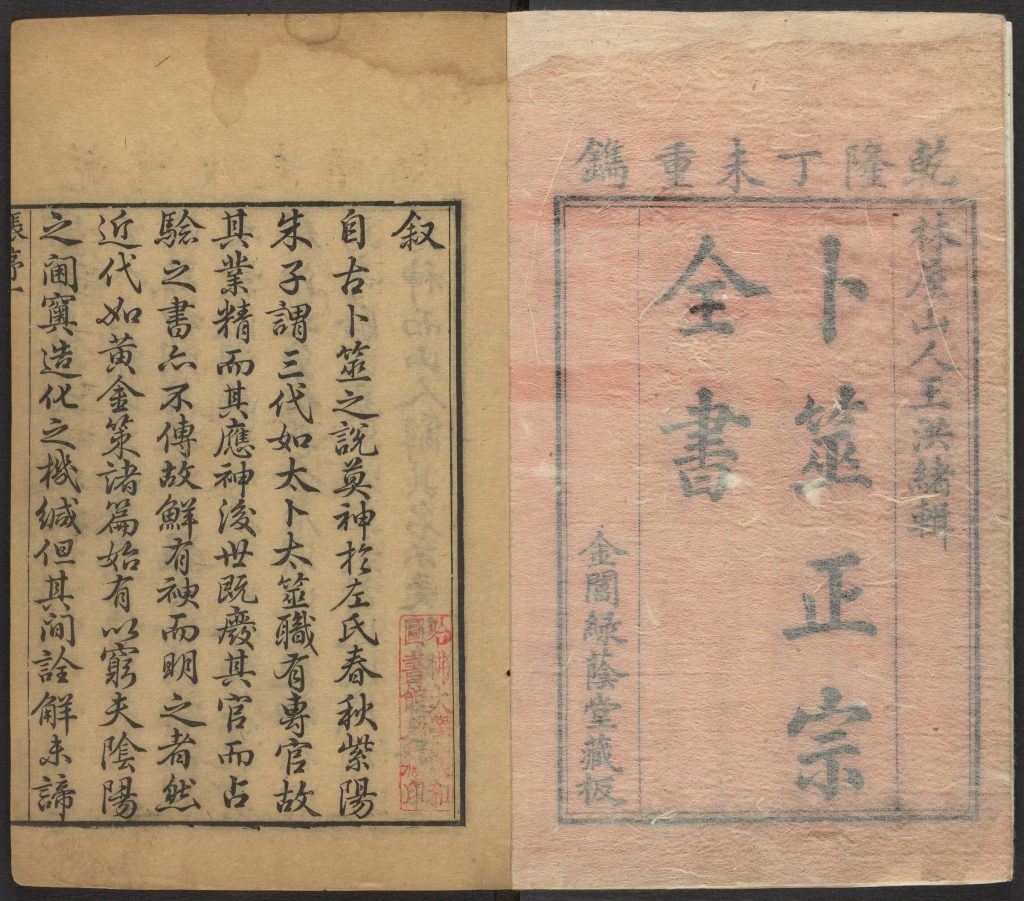 乾隆丁未重鐫
林屋山人王洪緒輯
卜筮正宗
全書
金閶緑蔭堂藏板
叙
自古卜筮之說莫神於左氏春秋紫陽
朱子謂三代如太卜太筮職有專官故
其業精而其應神後世既廢其官而占
騐之書亦不傳故鮮有神而明之者然
近代如黃金策諸篇始有以窮夫陰陽
之閫奧造化之機緘但其間詮解未諦
張序一
哈佛大學漢和
圖書館珍藏印